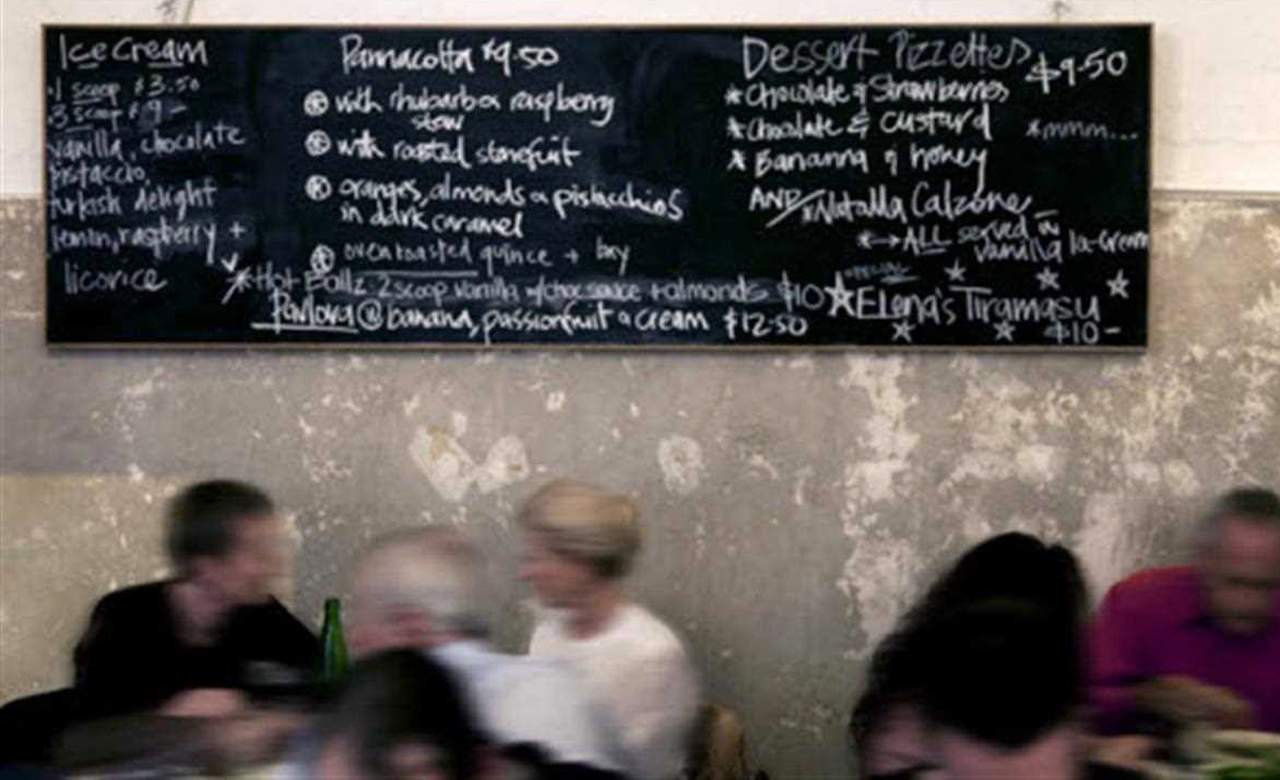 Ice Cream
1 scoop $3.50
3 scoop $9-
vanilla, chocolate
pistaccio,
turkish delight
lemon, raspberry +
licorice
Pannacotta $9.50
with rhubarb & raspberry
stew
with roasted stonefruit
oranges, almonds & pistacchios
in dark caramel
oven roasted quince + bay
*Hot Ballz 2 scoop vanilla w/choc sauce + almonds $10
Pavlova @ banana, passionfruit & cream $12.50
Dessert Pizzettes $9.50
* Chocolate & Strawberries
* Chocolate & custard *mmm...
* Bananna & honey
AND/*Nutella Calzone
*→ALL served w
vanilla Ice-Cream
SPECIAL
Elena's Tiramasu
$10-